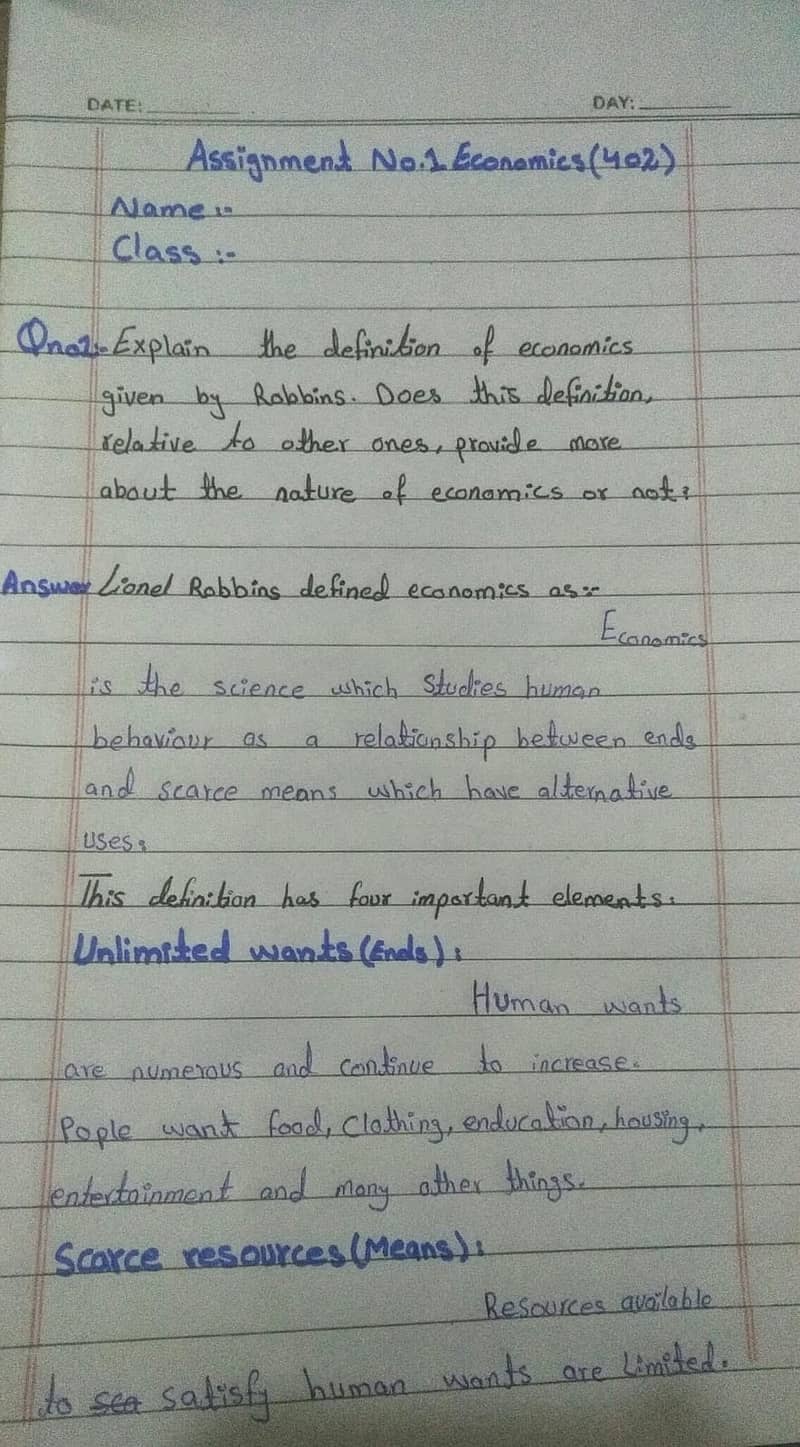 DATE:
DAY:
Assignment No.1 Economics(402)
Name :-
Class :-
Qno1:- Explain the definition of economics
given by Robbins. Does this definition,
relative to other ones, provide more
about the nature of economics or not?
Answer Lionel Robbins defined economics as:-
Economics
is the science which studies human
behaviour as a relationship between ends
and scarce means which have alternative
uses.
This definition has four important elements.
Unlimited wants (Ends):
Human wants
are numerous and continue to increase.
Pople want food, clothing, enducation, housing,
entertainment and many other things.
Scarce resources (Means):
Resources available
to sea satisfy human wants are limited.